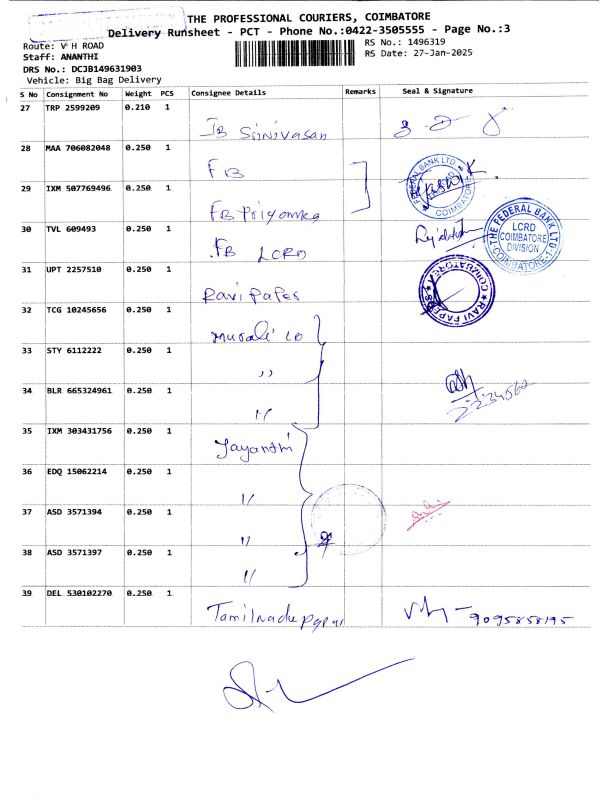 THE PROFESSIONAL COURIERS, COIMBATORE
Delivery Runsheet - PCT - Phone No.:0422-3505555 - Page No.:3
Route: V H ROAD
RS No.: 1496319
Staff: ANANTHI
RS Date: 27-Jan-2025
DRS No.: DCJB149631903
Vehicle: Big Bag Delivery
S No Consignment No Weight PCS Consignee Details Remarks Seal & Signature
27 TRP 2599209 0.210 1 IB Srinivasan
28 MAA 706082048 0.250 1 FB
FEDERAL BANK LTD COIMBATORE
29 IXM 507769496 0.250 1 FB Priyanka
30 TVL 609493 0.250 1 FB LCRD
THE FEDERAL BANK LTD. LCRD COIMBATORE DIVISION COIMBATORE-1
31 UPT 2257510 0.250 1 Ravi Paper
RAVI PAPER COIMBATORE
32 TCG 10245656 0.250 1 Murali co
33 STY 6112222 0.250 1 ,,
34 BLR 665324961 0.250 1 ''
35 IXM 303431756 0.250 1 Jayanthi
36 EDQ 15062214 0.250 1 ''
37 ASD 3571394 0.250 1 ''
38 ASD 3571397 0.250 1 ''
39 DEL 530102270 0.250 1 Tamilnadu Paper
9095858195